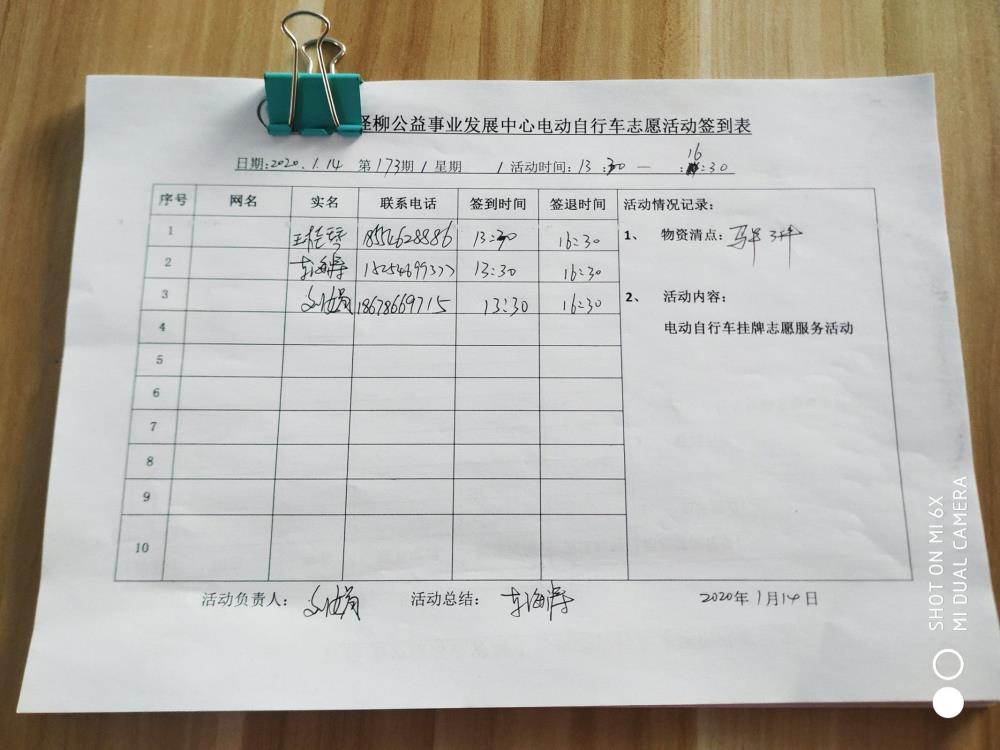 柳公益事业发展中心电动自行车志愿活动签到表
日期:2020.1.14 第173期/星期 /活动时间:13:30— 16:30
序号 网名 实名 联系电话 签到时间 签退时间 活动情况记录:
1 王桂琴 18554628886 13:30 16:30 1、 物资清点:马甲3件
2 海涛 13:30 16:30
3 刘娟 18678669715 13:30 16:30 2、 活动内容:
4 电动自行车挂牌志愿服务活动
5
6
7
8
9
10
活动负责人: 刘娟 活动总结: 海涛 2020年1月14日
SHOT ON MI 6X
MI DUAL CAMERA